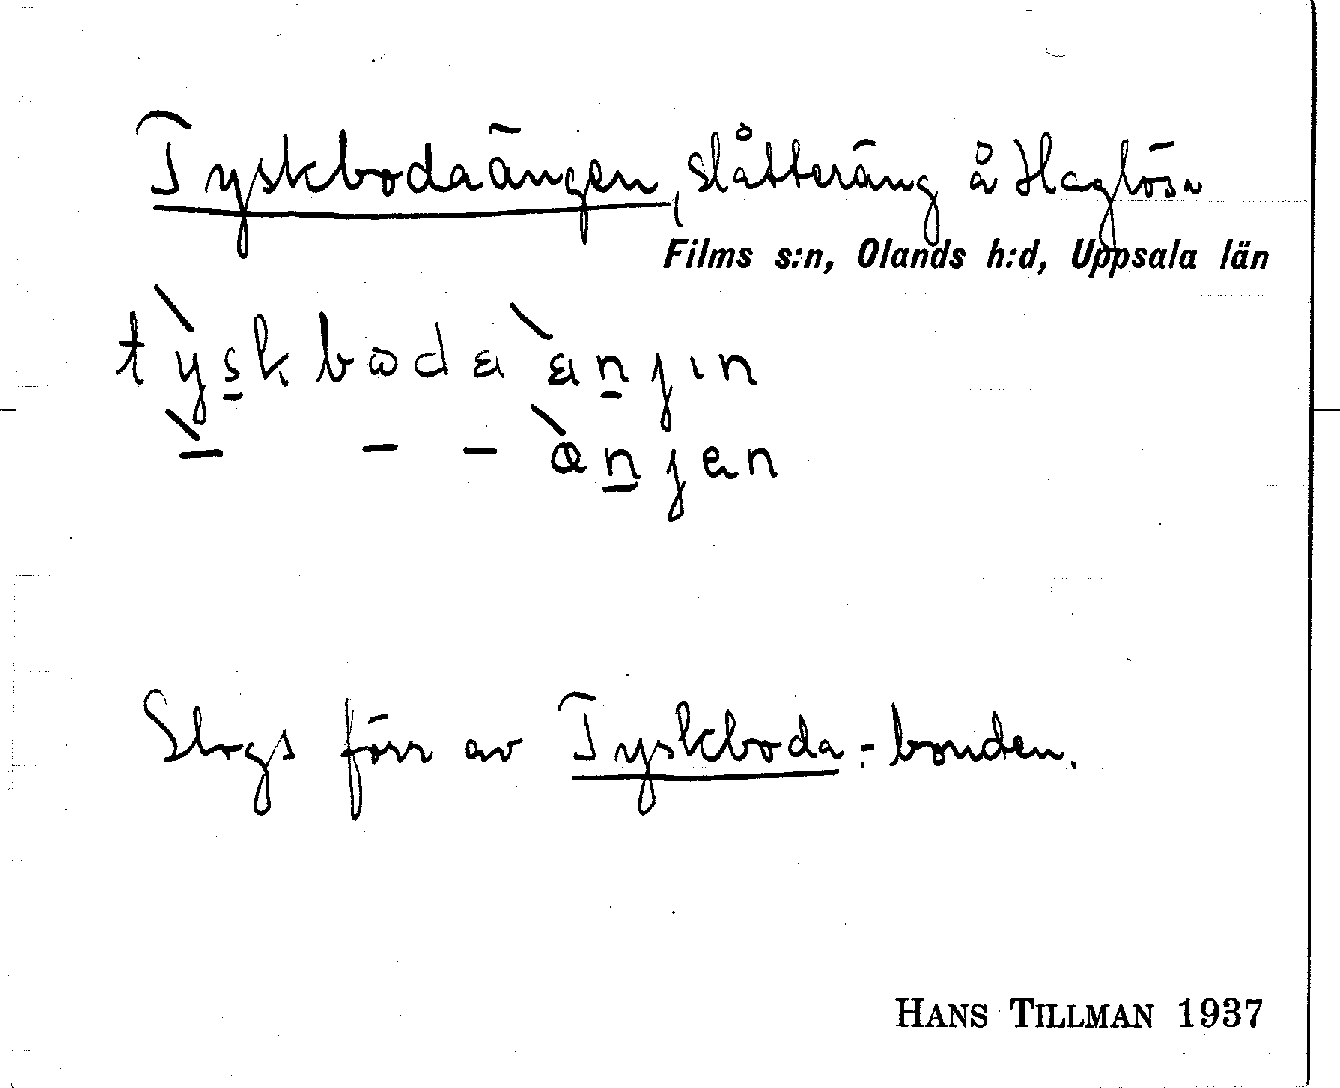 Tyskbodaängen, slåtteräng å Haglösa
Films s:n, Olands h:d, Uppsala län
tỳskbodaànjın
`– – – ànjen
Slogs förr av Tyskboda-bonden.
HANS TILLMAN 1937